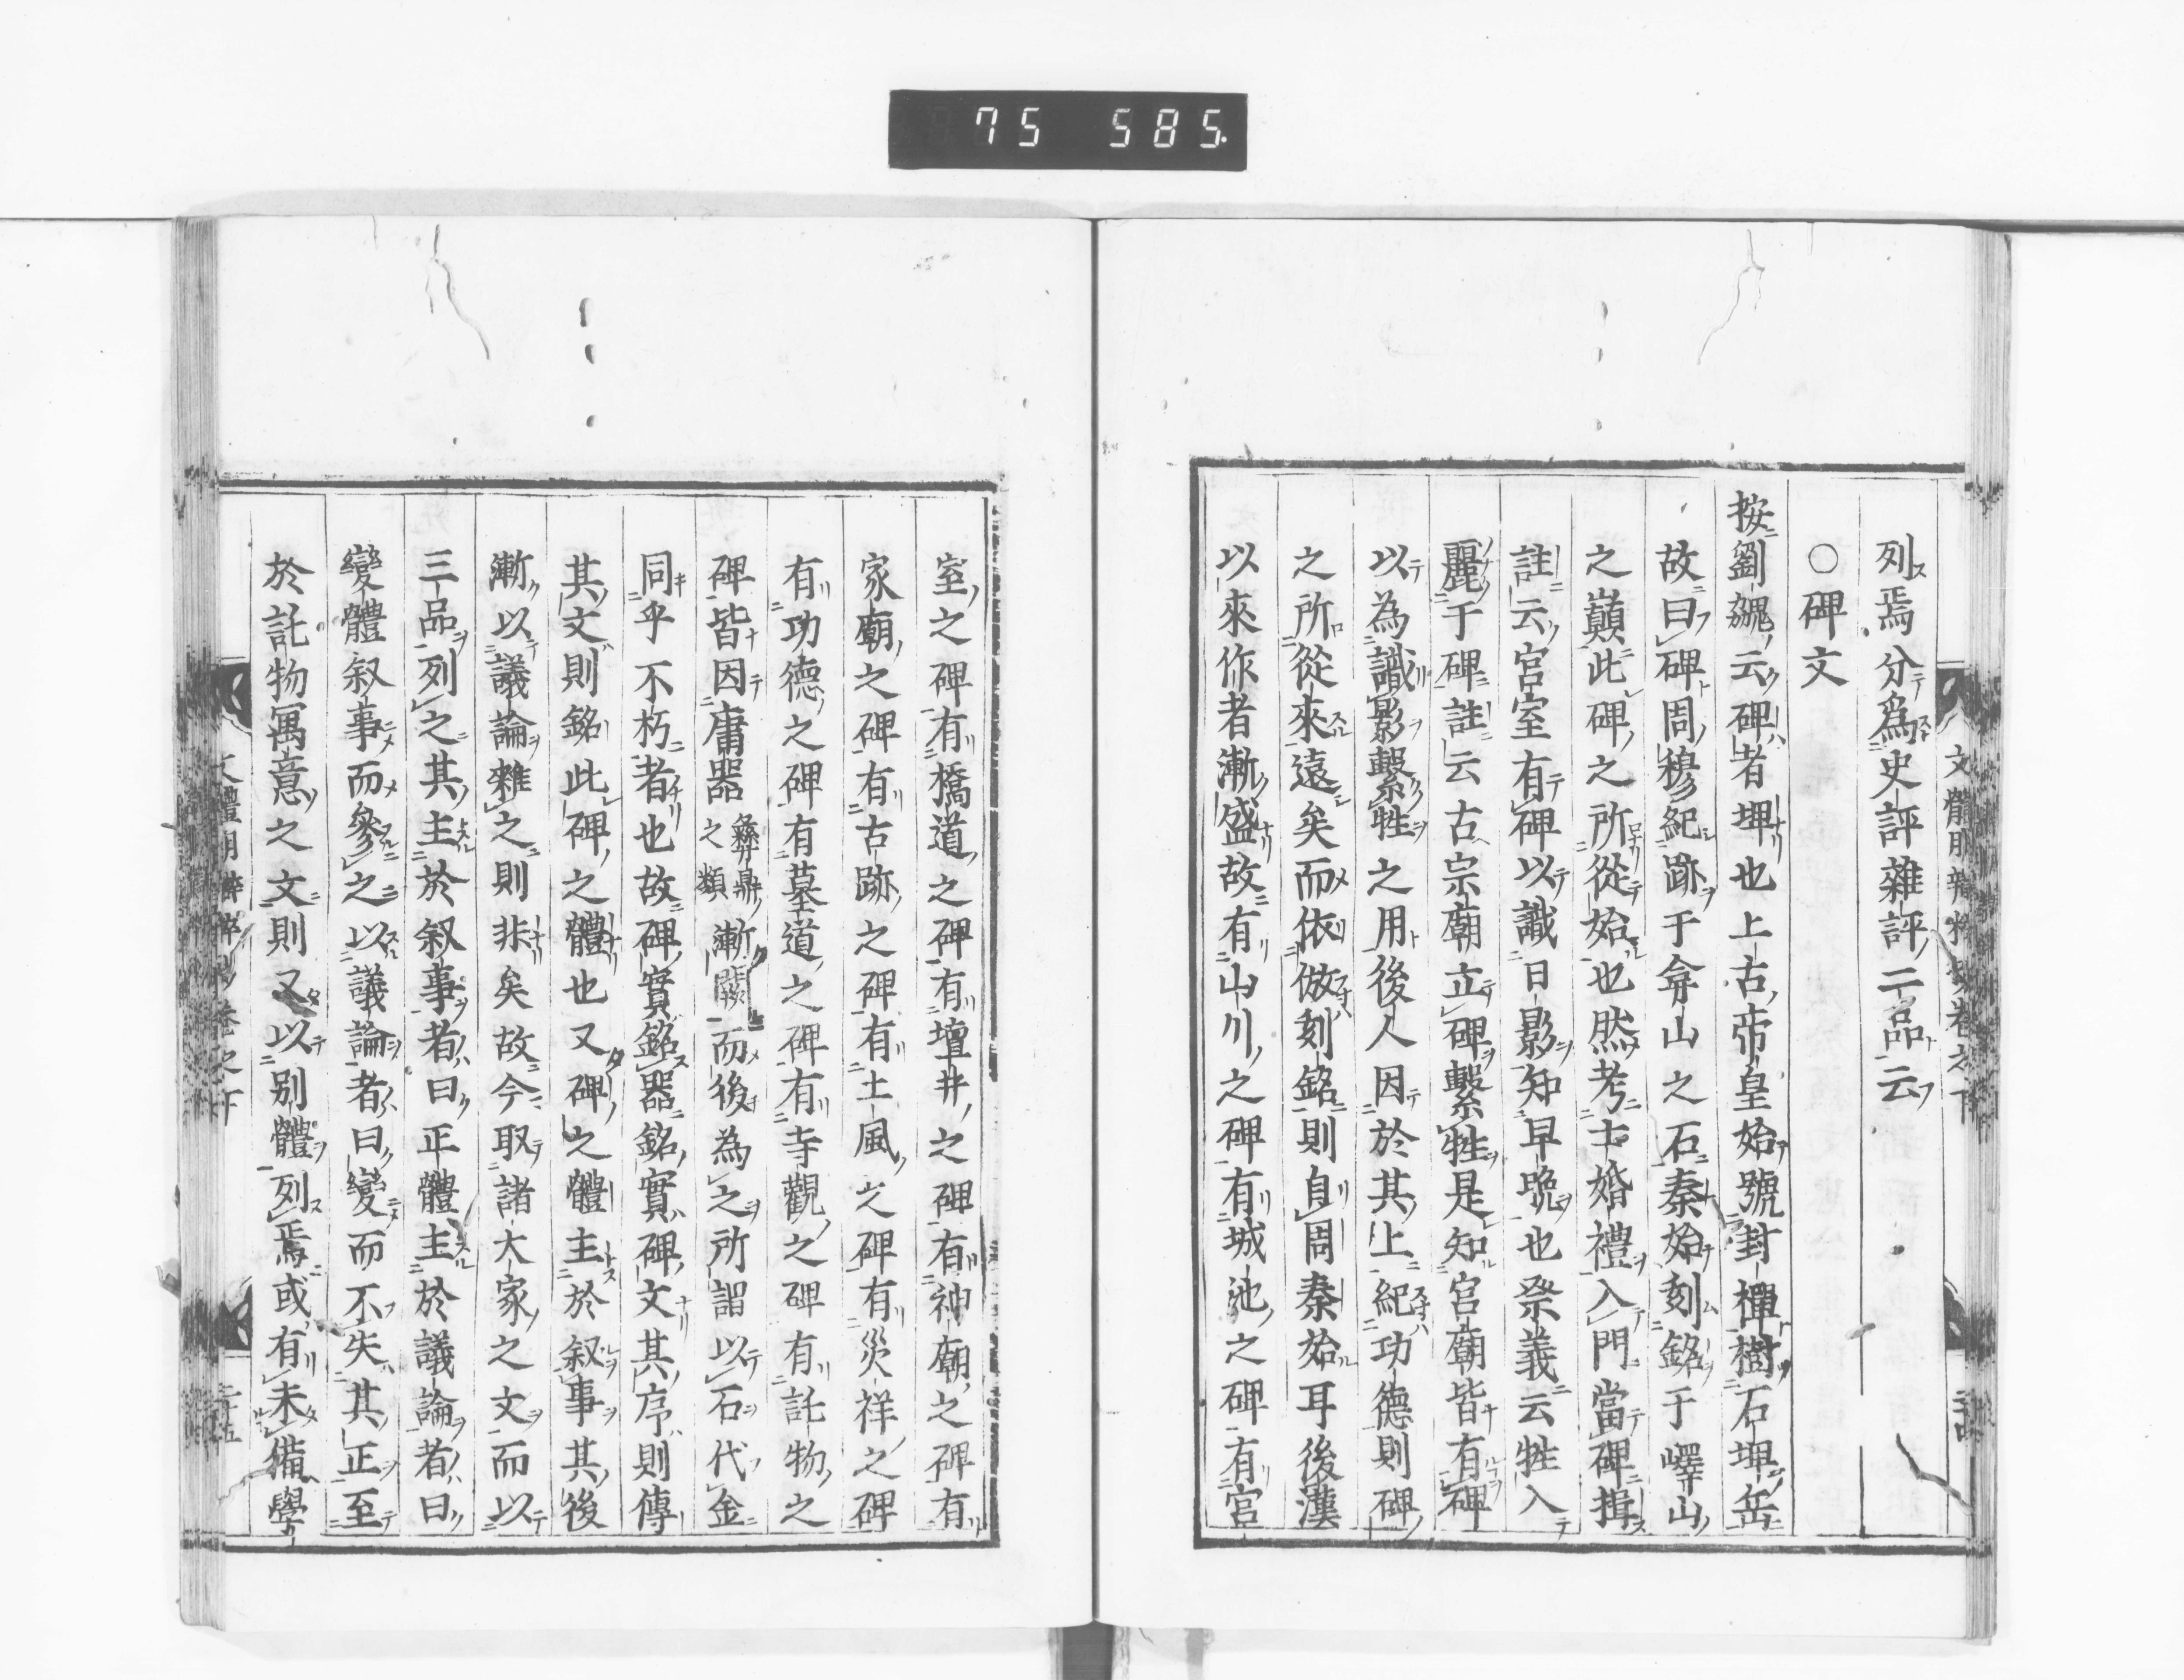 75 585.
列焉分爲史評雜評二品云
○碑文
按劉勰云碑者埤也上古帝皇始號封禪樹石埤岳
故曰碑周穆紀跡于弇山之石秦始刻銘于嶧山
之巔此碑之所從始也然考士婚禮入門當碑揖
註云宮室有碑以識日影知早晩也祭義云牲入
麗于碑註云古宗廟立碑繫牲是知宮廟皆有碑
以為識影繫牲之用後人因於其上紀功德則碑
之所從來遠矣而依倣刻銘則自周秦始耳後漢
以來作者漸盛故有山川之碑有城池之碑有宮
室之碑有橋道之碑有壇井之碑有神廟之碑有
家廟之碑有古跡之碑有土風之碑有災祥之碑
有功德之碑有墓道之碑有寺觀之碑有託物之
碑皆因庸器彝鼎之類漸闕而後為之所謂以石代金
同乎不朽者也故碑實銘器銘實碑文其序則傳
其文則銘此碑之體也又碑之體主於叙事其後
漸以議論雜之則非矣故今取諸大家之文而以
三品列之其主於叙事者曰正體主於議論者曰
變體叙事而參之以議論者曰變而不失其正至
於託物寓意之文則又以别體列焉或有未備學